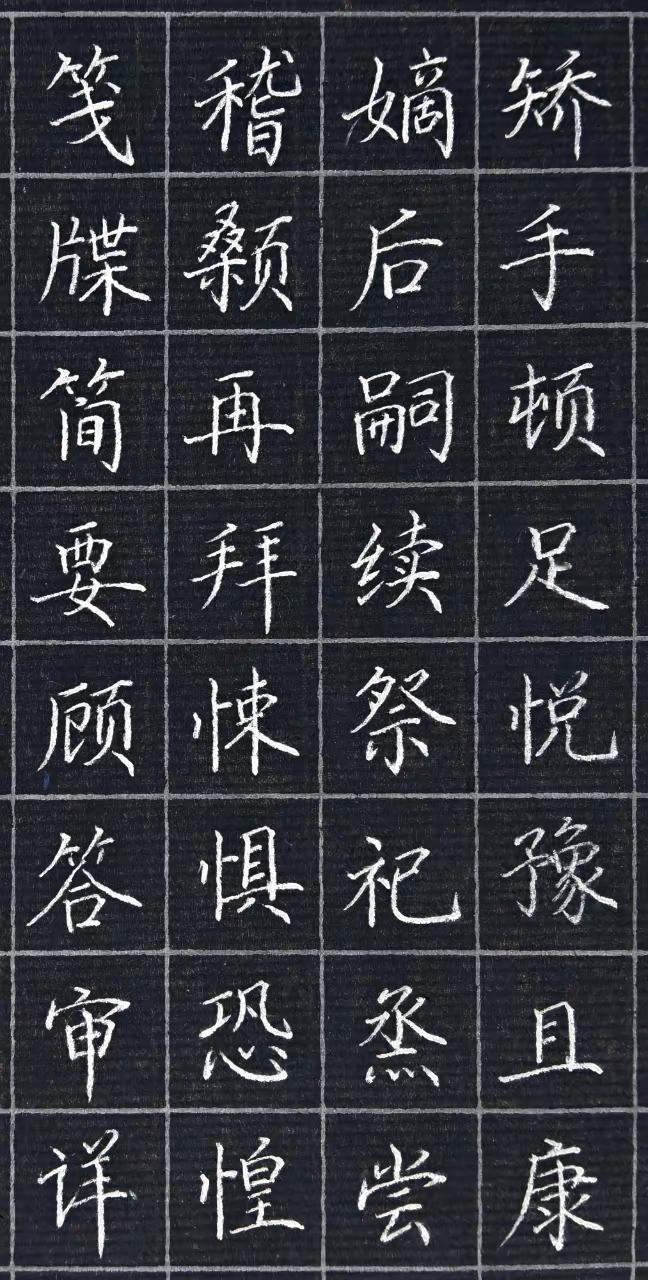 矫手顿足悦豫且康
嫡后嗣续祭祀烝尝
稽颡再拜悚惧恐惶
笺牒简要顾答审详